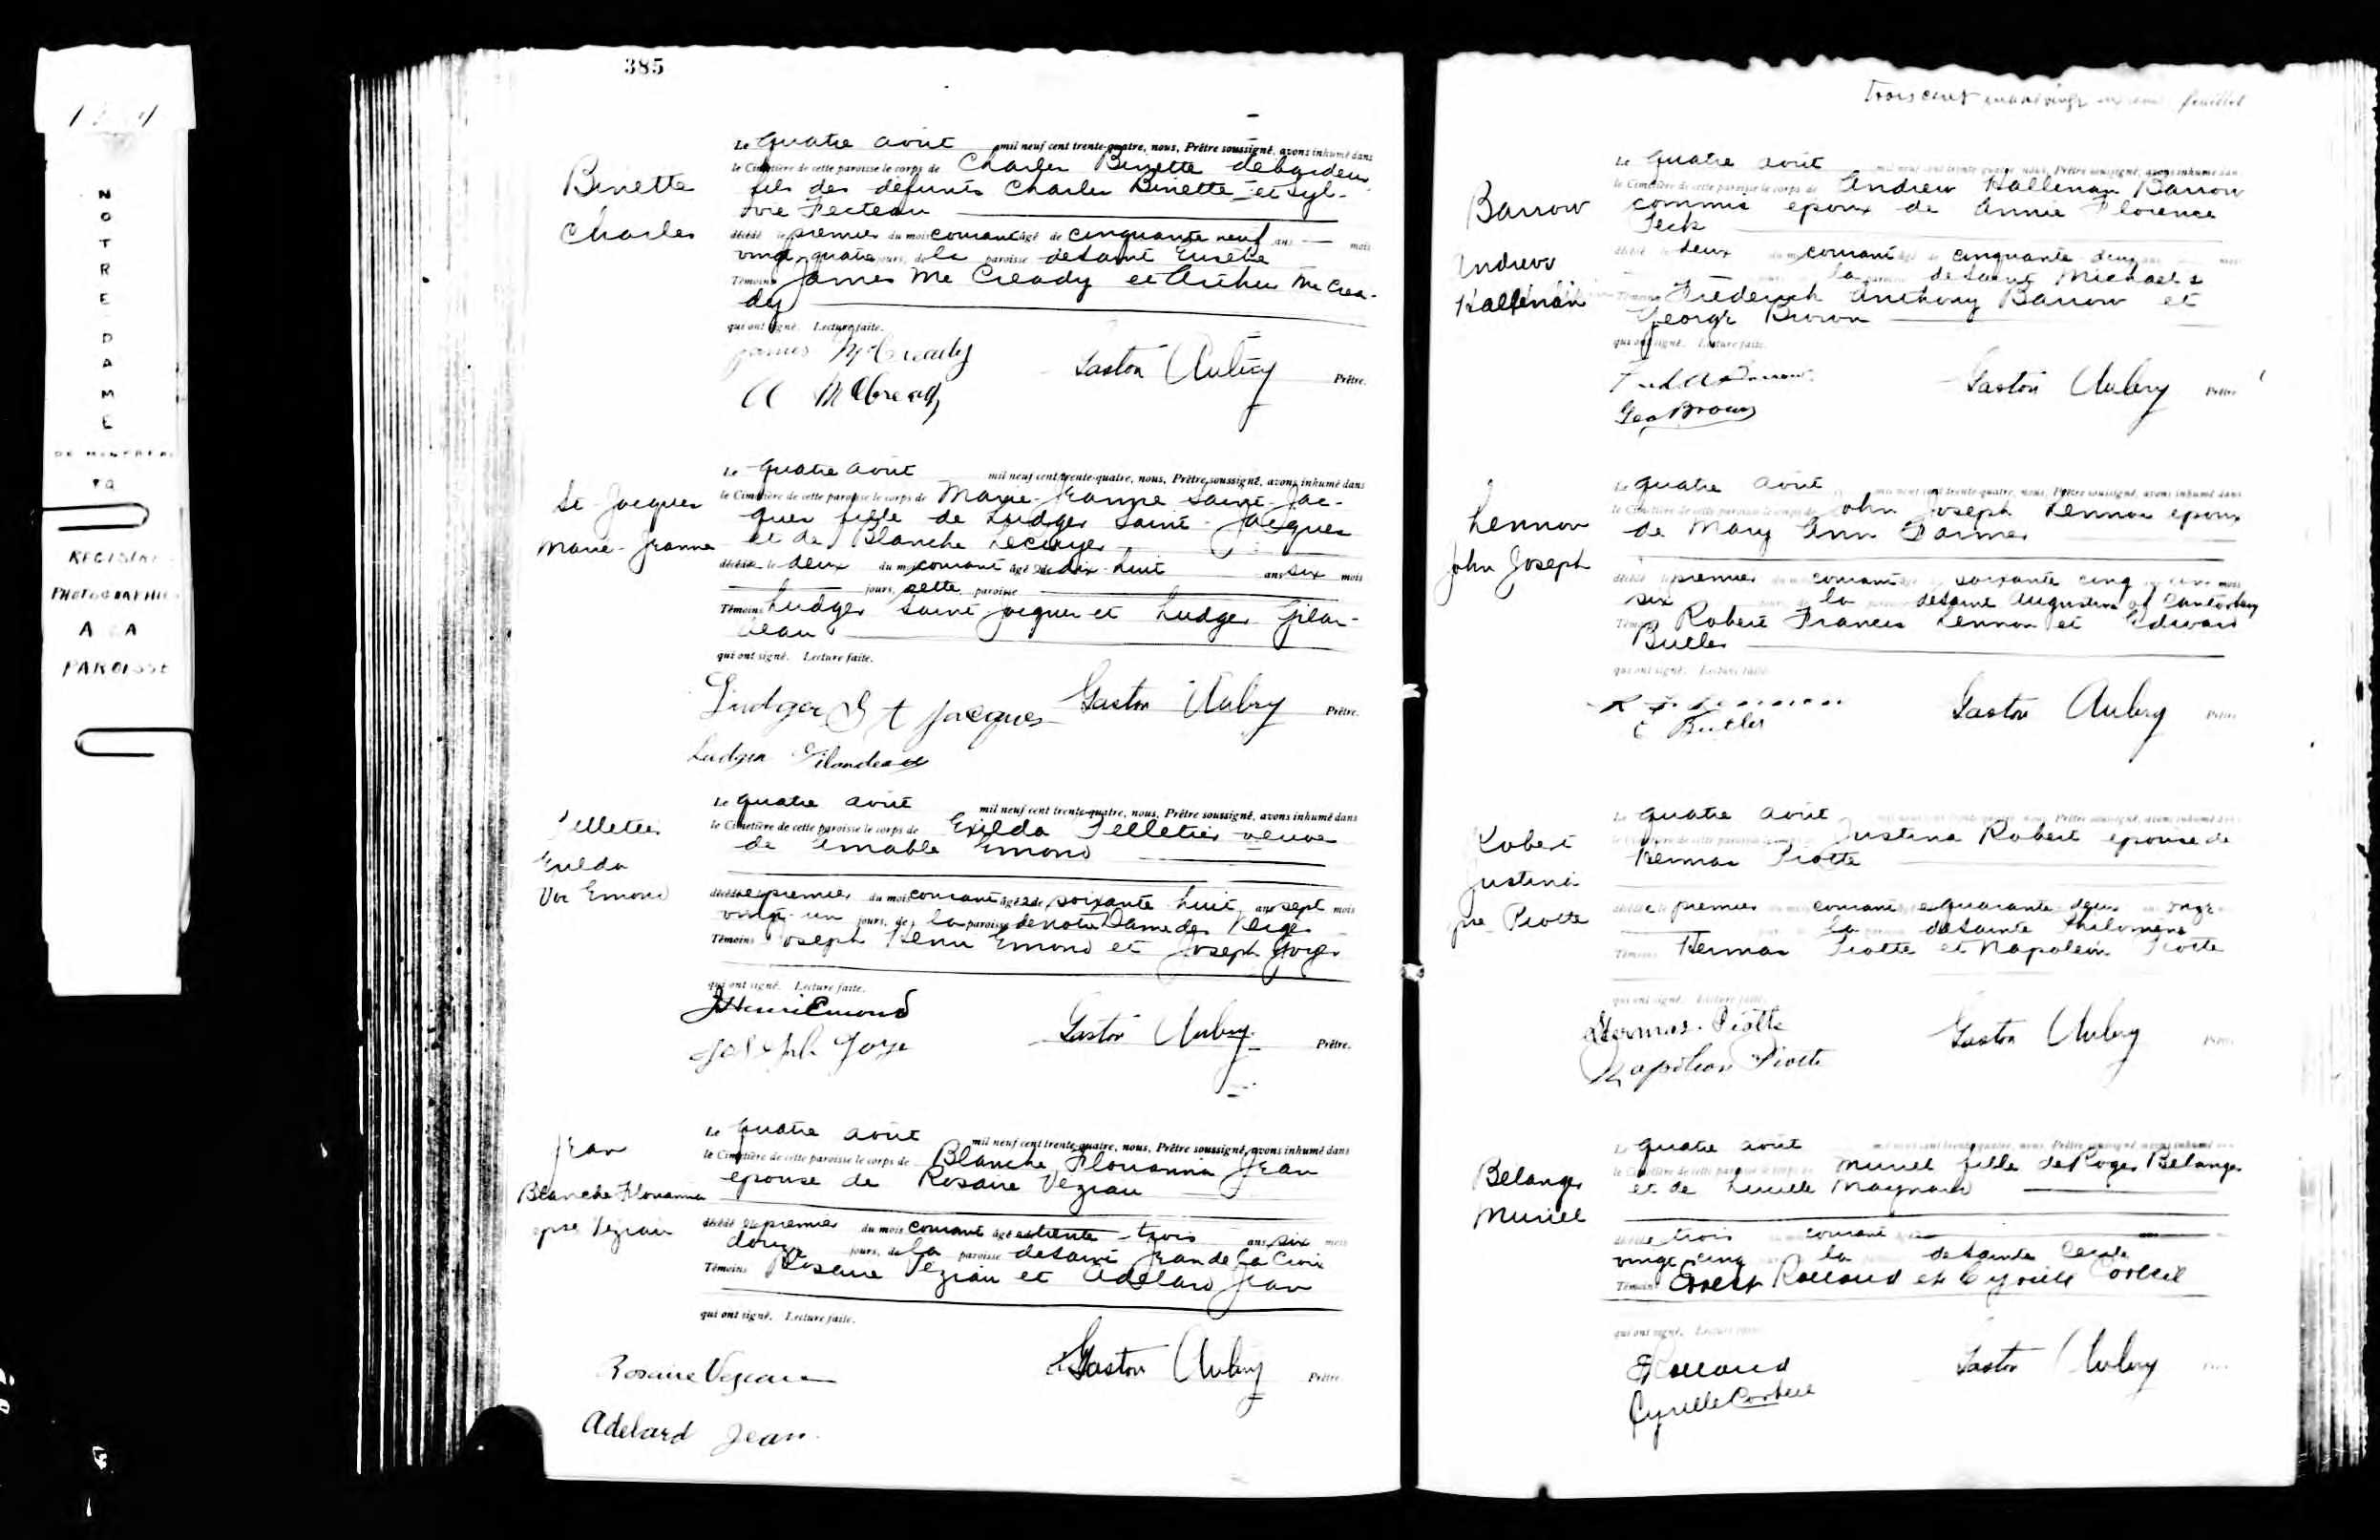 NOTRE DAME
DE MONTREAL
PQ
REGISTRE
A LA
PAROISSE
385
Binette
Charles
Le quatre août mil neuf cent trente-quatre, nous, Prêtre soussigné, avons inhumé dans
le Cimetière de cette paroisse le corps de Charles Binette débardeur
fils des défunts Charles Binette et Syl-
vie Fecteau
décédé le premier du mois courant âgé de cinquante neuf ans mois
vingt quatre jours, de la paroisse de Saint Eusèbe
Témoins James Mc Cready et Arthur Mc Crea-
dy
qui ont signé. Lecture faite.
James McCready
A McCready
Gaston Aubry Prêtre.
St Jacques
Marie-Jeanne
Le quatre août mil neuf cent trente-quatre, nous, Prêtre soussigné, avons inhumé dans
le Cimetière de cette paroisse le corps de Marie-Jeanne Saint-Jac-
ques fille de Ludger Saint-Jacques
et de Blanche Lecuyer
décédée le deux du mois courant âgée de dix-huit ans six mois
jours, cette paroisse
Témoins Ludger Saint Jacques et Ludger Filan-
deau
qui ont signé. Lecture faite.
Ludger St Jacques
Ludger Filandeau
Gaston Aubry Prêtre.
Pelletier
Exilda
Vve Emond
Le quatre août mil neuf cent trente-quatre, nous, Prêtre soussigné, avons inhumé dans
le Cimetière de cette paroisse le corps de Exilda Pelletier veuve
de Aimable Emond
décédée le premier du mois courant âgée de soixante huit ans sept mois
vingt-un jours, de la paroisse de Notre Dame des Neiges
Témoins Joseph Henri Emond et Joseph Goyer
qui ont signé. Lecture faite.
J Henri Emond
Joseph Goyer
Gaston Aubry Prêtre.
Jean
Blanche Florianna
epse Vezian
Le quatre août mil neuf cent trente-quatre, nous, Prêtre soussigné, avons inhumé dans
le Cimetière de cette paroisse le corps de Blanche Florianna Jean
épouse de Rosaire Vezian
décédé le premier du mois courant âgée trente-trois ans six mois
douze jours, de la paroisse de Saint Jean de la Croix
Témoins Rosaire Vezian et Adelard Jean
qui ont signé. Lecture faite.
Rosaire Vezian
Adelard Jean
Gaston Aubry Prêtre.
Trois cent feuillet
Barrow
Andrew
Hallenan
Le quatre août mil neuf cent trente quatre, nous, Prêtre soussigné, avons inhumé dans
le Cimetière de cette paroisse le corps de Andrew Hallenan Barrow
commis époux de Annie Florence
Peck
décédé le deux courant âgé de cinquante deux ans
la paroisse de Saint Michael's
Témoins Frederick Anthony Barrow et
George Brown
qui ont signé. Lecture faite.
Geo Brown
Gaston Aubry Prêtre
Lennon
John Joseph
Le quatre août mil neuf cent trente-quatre, nous, Prêtre soussigné, avons inhumé dans
le Cimetière de cette paroisse le corps de John Joseph Lennon époux
de Mary Ann Farmer
décédé le premier courant soixante cinq mois
six la de Saint Augustine of Canterbury
Témoins Robert Francis Lennon et Edward
Butler
qui ont signé. Lecture faite.
R F Lennon
E Butler
Gaston Aubry
Robert
Justina
pse Piotte
Le quatre août
Justina Robert épouse de
Hermas Piotte
le premier courant quarante deux onze
la de Sainte Philomène
Témoins Hermas Piotte et Napoléon Piotte
qui ont signé. Lecture faite.
Hermas Piotte
Napoléon Piotte
Gaston Aubry
Belanger
Muriel
Le quatre août
Muriel fille de Roger Belanger
et de Lucille Maynard
trois courant
vingt cinq la de Sainte Cécile
Témoins Ernest Rolland et Cyrille Corbeil
qui ont signé. Lecture faite.
E Rolland
Cyrille Corbeil
Gaston Aubry